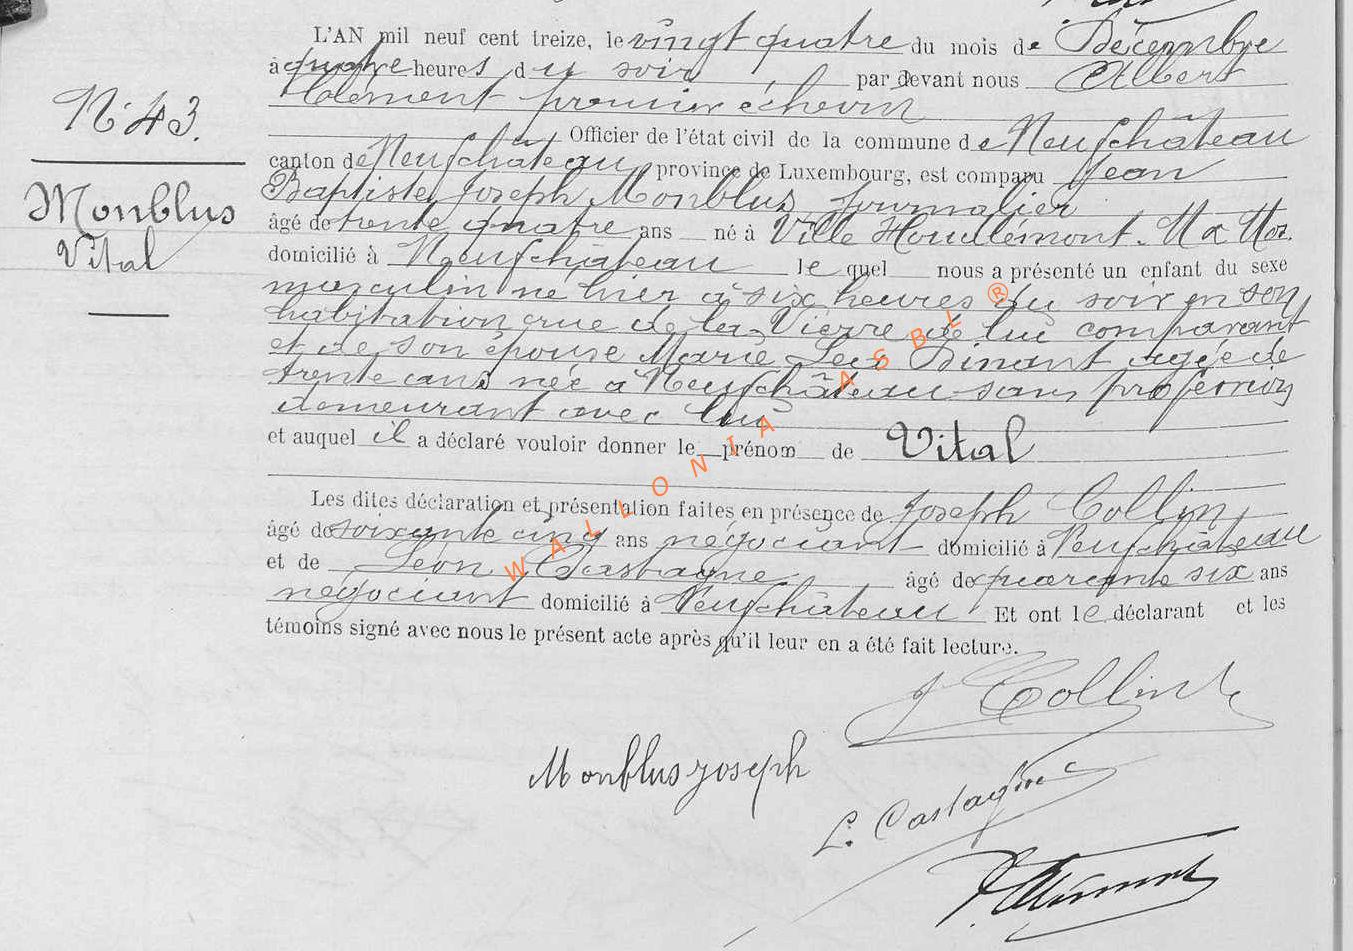 L'AN mil neuf cent treize, le vingt quatre du mois de Décembre
à quatre heures du soir par devant nous Albert
Clément premier échevin
N° 43.
Officier de l'état civil de la commune de Neufchâteau
canton de Neufchâteau province de Luxembourg, est comparu Jean
Baptiste Joseph Monblus journalier
Monblus
Vital
âgé de trente quatre ans né à Ville Houdlémont. M & Mos.
domicilié à Neufchâteau le quel nous a présenté un enfant du sexe
masculin né hier à six heures du soir en son
habitation rue de la Vierre de lui comparant
et de son épouse Marie Dinant agée de
trente ans née à Neufchâteau sans profession
demeurant avec lui
et auquel il a déclaré vouloir donner le prénom de Vital
Les dites déclaration et présentation faites en présence de Joseph Collin
âgé de soixante cinq ans négociant domicilié à Neufchâteau
et de Léon Castagne âgé de quarante six ans
négociant domicilié à Neufchâteau Et ont le déclarant et les
témoins signé avec nous le présent acte après qu'il leur en a été fait lecture.
J Collin
Monblus joseph
L. Castagne
WALLONIA ASBL ®